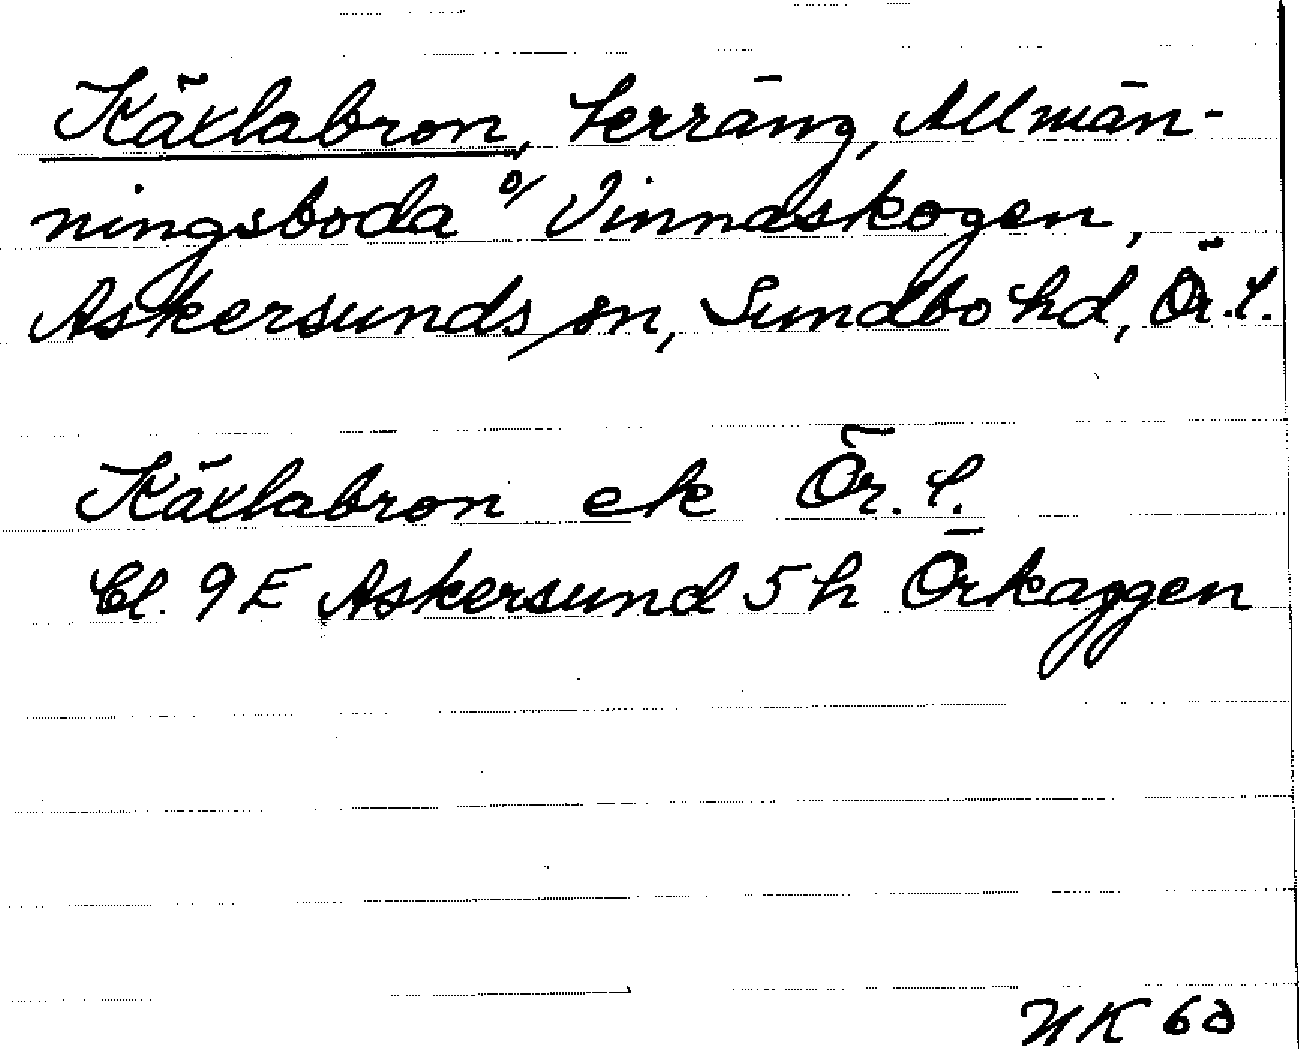 Käxlabron, terräng, Allmän-
ningsboda o/ Vinnaskogen,
Askersunds sn, Sundbo hd, Ör.l.
Käxlabron ek Ör.l.
Bl. 9E Askersund 5h Örkaggen
NK 60